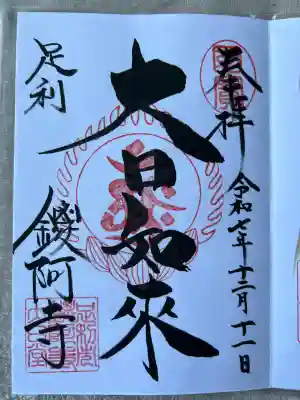 奉拝
令和七年十二月十一日
大日如来
足利
鑁阿寺